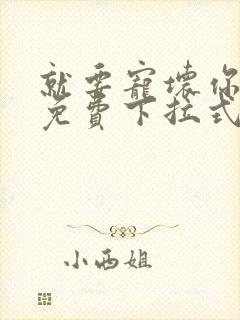 就要寵壞你
免費下拉式
小西姐